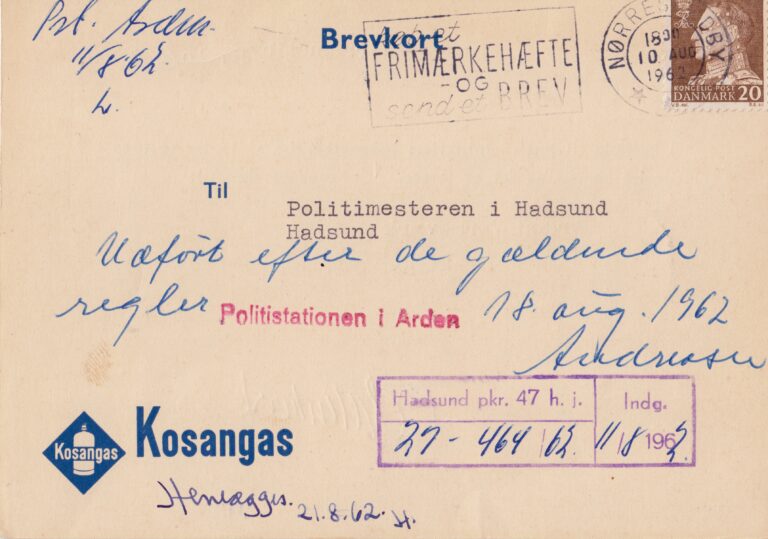 Pst. Arden
11/8 62.
h.
Brevkort
køb et
FRIMÆRKEHÆFTE
-OG
send et BREV
NØRRESUNDBY
1800
10 AUG
1962
KONGELIG POST
DANMARK 20
Til
Politimesteren i Hadsund
Hadsund
Udført efter de gældende
regler
Politistationen i Arden
18. aug. 1962
Andreasen
Hadsund pkr. 47 h. j.
Indg.
27 - 464 /62.
11/8 1962.
Kosangas
Kosangas
Henlægges.
21.8.62. H.